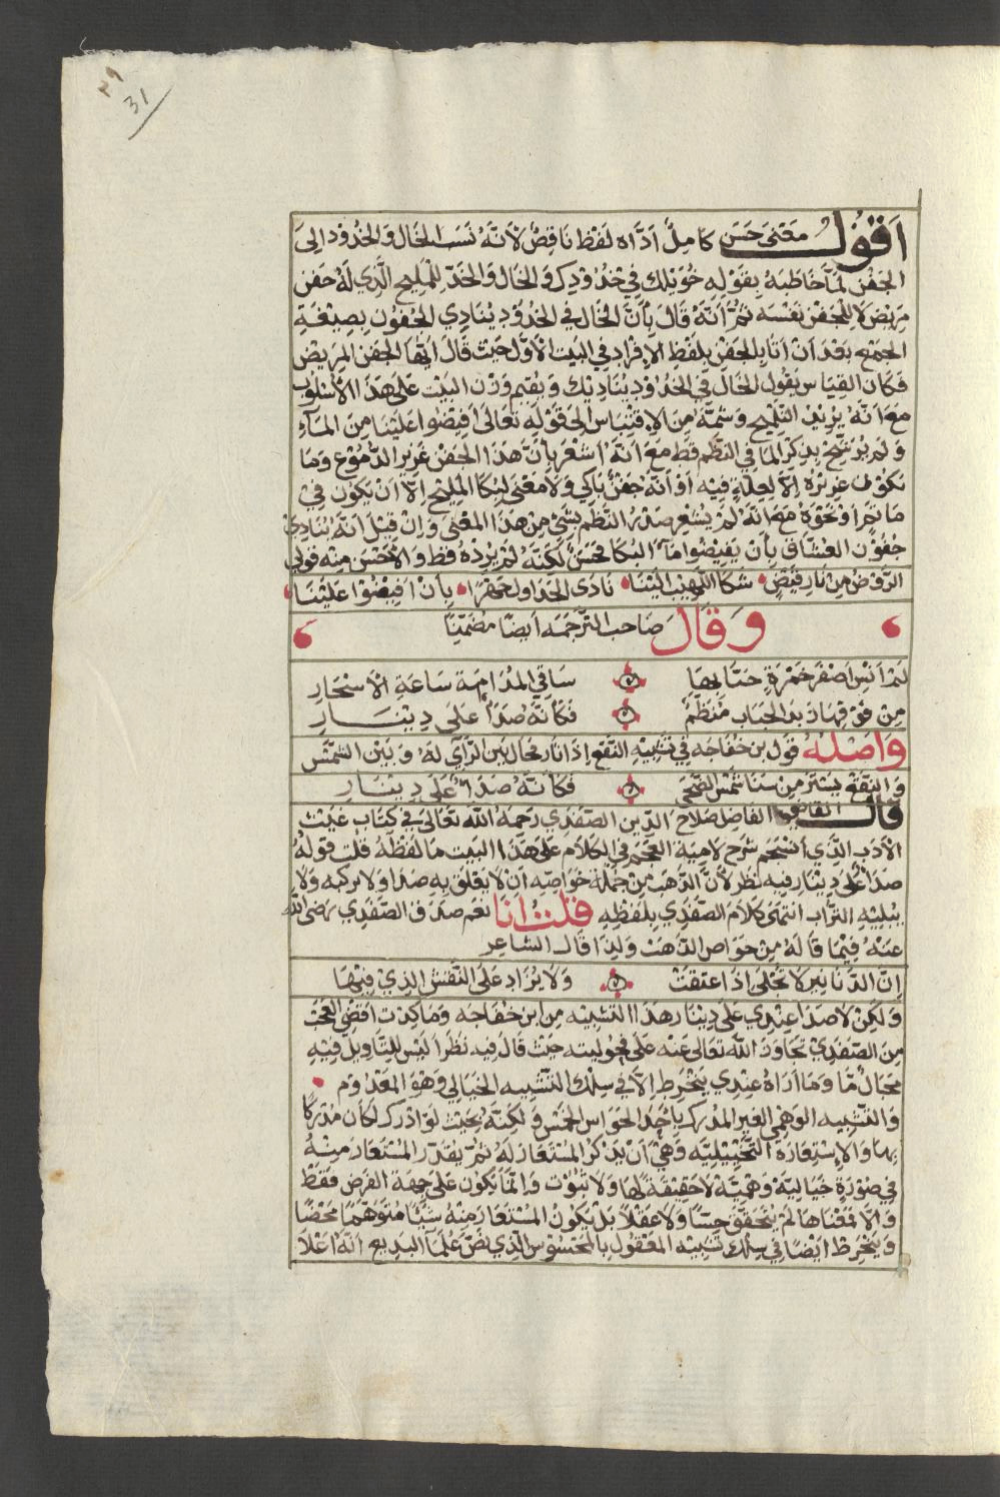 ٢٩
31
اَقول معنى حسن كامل ادّاه لفظ ناقص لانّه نسب الخال والخدود الى
الجفن لمّا خاطبه بقوله خويلك في خدودك والخال والخدّ للمليح الّذي له جفن
مريض لا للجفن نفسه ثمّ انّه قال بأنّ الخال في الخدود ينادي الجفون بصيغة
الجمع بعد ان اتا بالجفن بلفظ الإفراد في البيت الاوّل حيث قال ايّها الجفن المريض
فكان القياس يقول الخال في الخدود يناديك ويقيم وزن البيت على هذا الاسلوب
مع انّه يريد التلميح وشمّة من الاقتباس الى قوله تعالى افيضوا علينا من المآء
ولم يرشّح بذكر الما في النظم قط مع انّه اشعر بأنّ هذا الجفن غزير الدّموع وما
تكون غزيرة إلّا لعلة فيه او انّه جفن باكي ولا معنى لبكا المليح الّا ان يكون في
ماتم او نحوه مع انّه لم يشعر صدر النظم بشئ من هذا المعنى وان قيل انّه ينادي
جفون العشاق بأن يفيضوا مآ البكا فحسن لكنّه لم يرده قط والاحسن منه قولي
الرّوض من نار قيض شكا اللهيب الينا نادى الجداول جهرًا بأن افيضوا علينا
وقال صاحب الترجمه ايضًا مضمّنًا
لم انس اصفر خمرة حيّا بها ساقي المدامة ساعة الاسحار
من فوقها ذبد الحباب منظّم فكانّه صدأ على دينار
واصله قول بن خفاجه في تشبيه النقع اذا ثار فحال بين الرّآي له وبين الشمس
والنقع يستر من سنا شمس الضحى فكانّه صدأ على دينار
قال القاضي الفاضل صلاح الدّين الصّفدي رحمه الله تعالى في كتاب غيث
الادب الّذي انسجم شرح لامية العجم في الكلام على هذا البيت ما لفظه قلت قوله
صدأ على دينار فيه نظر لأنّ الذهب من جملة خواصّه ان لا يعلق به صدا ولا يركبه ولا
يبليه التراب انتهى كلام الصّفدي بلفظه قلت انا نعم صدق الصّفدي رضى الله
عنه فيما قاله من خواص الذهب ولذا قال الشاعر
إنّ الدّنانير لا تجلى اذا عتقت ولا يزاد على النقش الذي فيها
ولكن لا صدأ عندي على دينار هذا التشبيه من ابن خفاجه وما كدت اقضي العجب
من الصّفدي تجاوز الله تعالى عنه على فحوليته حيث قال فيه نظرا ليس للتاويل فيه
مجال مّا وما اراه عندي ينخرط إلّا في سلك التشبيه الخيالي وهو المعدوم
والتشبيه الوهمي الغير المدرك باحد الحواس الخمس ولكنّه بحيث لو ادرك لكان مدركًا
بها والاستعارة التخييليّه وهي أن يذكر المستعار له ثمّ يقدّر المستعار منه
في صورة خياليّة وهميّة لا حقيقة لها ولا ثبوت وانّما يكون على جهة الفرض فقط
والّا فمعناها لم يتحقّق حسًا ولا عقلًا بل يكون المستعار منه شيئًا متوهّمًا محضًا
وينخرط ايضًا في سلك تشبيه المعقول بالمحسوس الّذي نصّ علمآ البديع انّه اعلا